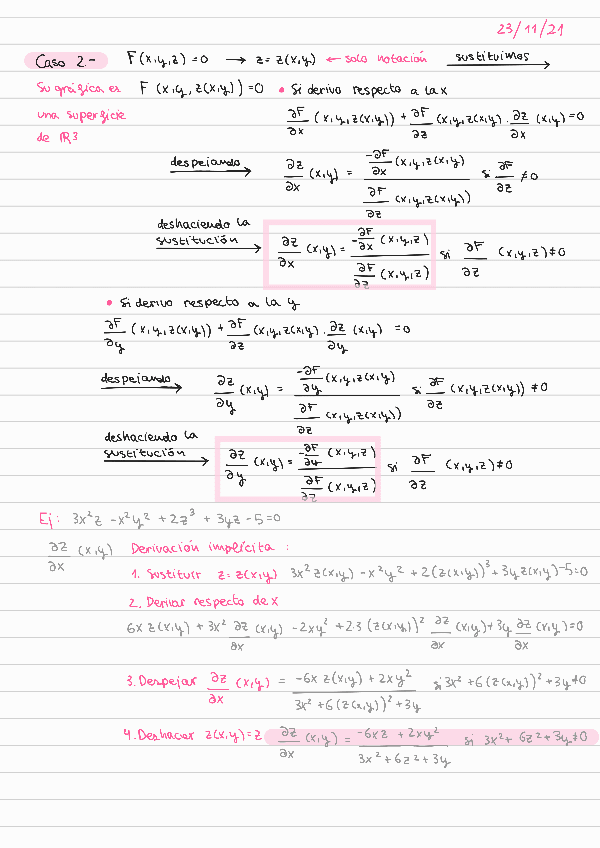 23/11/21
Caso 2.- F(x,y,z)=0 → z=z(x,y) ← solo notación sustituimos
Su gráfica es F(x,y,z(x,y))=0 • Si derivo respecto a la x
una superficie
de ℝ3
∂F/∂x (x,y,z(x,y)) + ∂F/∂z (x,y,z(x,y)) · ∂z/∂x (x,y)=0
despejando ∂z/∂x (x,y) = -∂F/∂x (x,y,z(x,y)) / ∂F/∂z (x,y,z(x,y)) si ∂F/∂z ≠0
deshaciendo la
sustitución ∂z/∂x (x,y) = -∂F/∂x (x,y,z) / ∂F/∂z (x,y,z) si ∂F/∂z (x,y,z)≠0
• Si derivo respecto a la y
∂F/∂y (x,y,z(x,y)) + ∂F/∂z (x,y,z(x,y)) · ∂z/∂y (x,y) =0
despejando ∂z/∂y (x,y) = -∂F/∂y (x,y,z(x,y)) / ∂F/∂z (x,y,z(x,y)) si ∂F/∂z (x,y,z(x,y)) ≠0
deshaciendo la
sustitución ∂z/∂y (x,y) = -∂F/∂y (x,y,z) / ∂F/∂z (x,y,z) si ∂F/∂z (x,y,z)≠0
Ej: 3x²z -x²y² +2z³ +3yz -5=0
∂z/∂x (x,y) Derivación implícita :
1. Sustituir z=z(x,y) 3x²z(x,y) -x²y² +2(z(x,y))³ +3yz(x,y) -5=0
2. Derivar respecto de x
6xz(x,y) +3x² ∂z/∂x (x,y) -2xy² +2·3 (z(x,y))² ∂z/∂x (x,y)+3y ∂z/∂x (x,y)=0
3. Despejar ∂z/∂x (x,y) = -6xz(x,y) +2xy² / 3x²+6(z(x,y))²+3y si 3x²+6(z(x,y))²+3y≠0
4. Deshacer z(x,y)=z ∂z/∂x (x,y) = -6xz +2xy² / 3x²+6z²+3y si 3x²+6z²+3y≠0